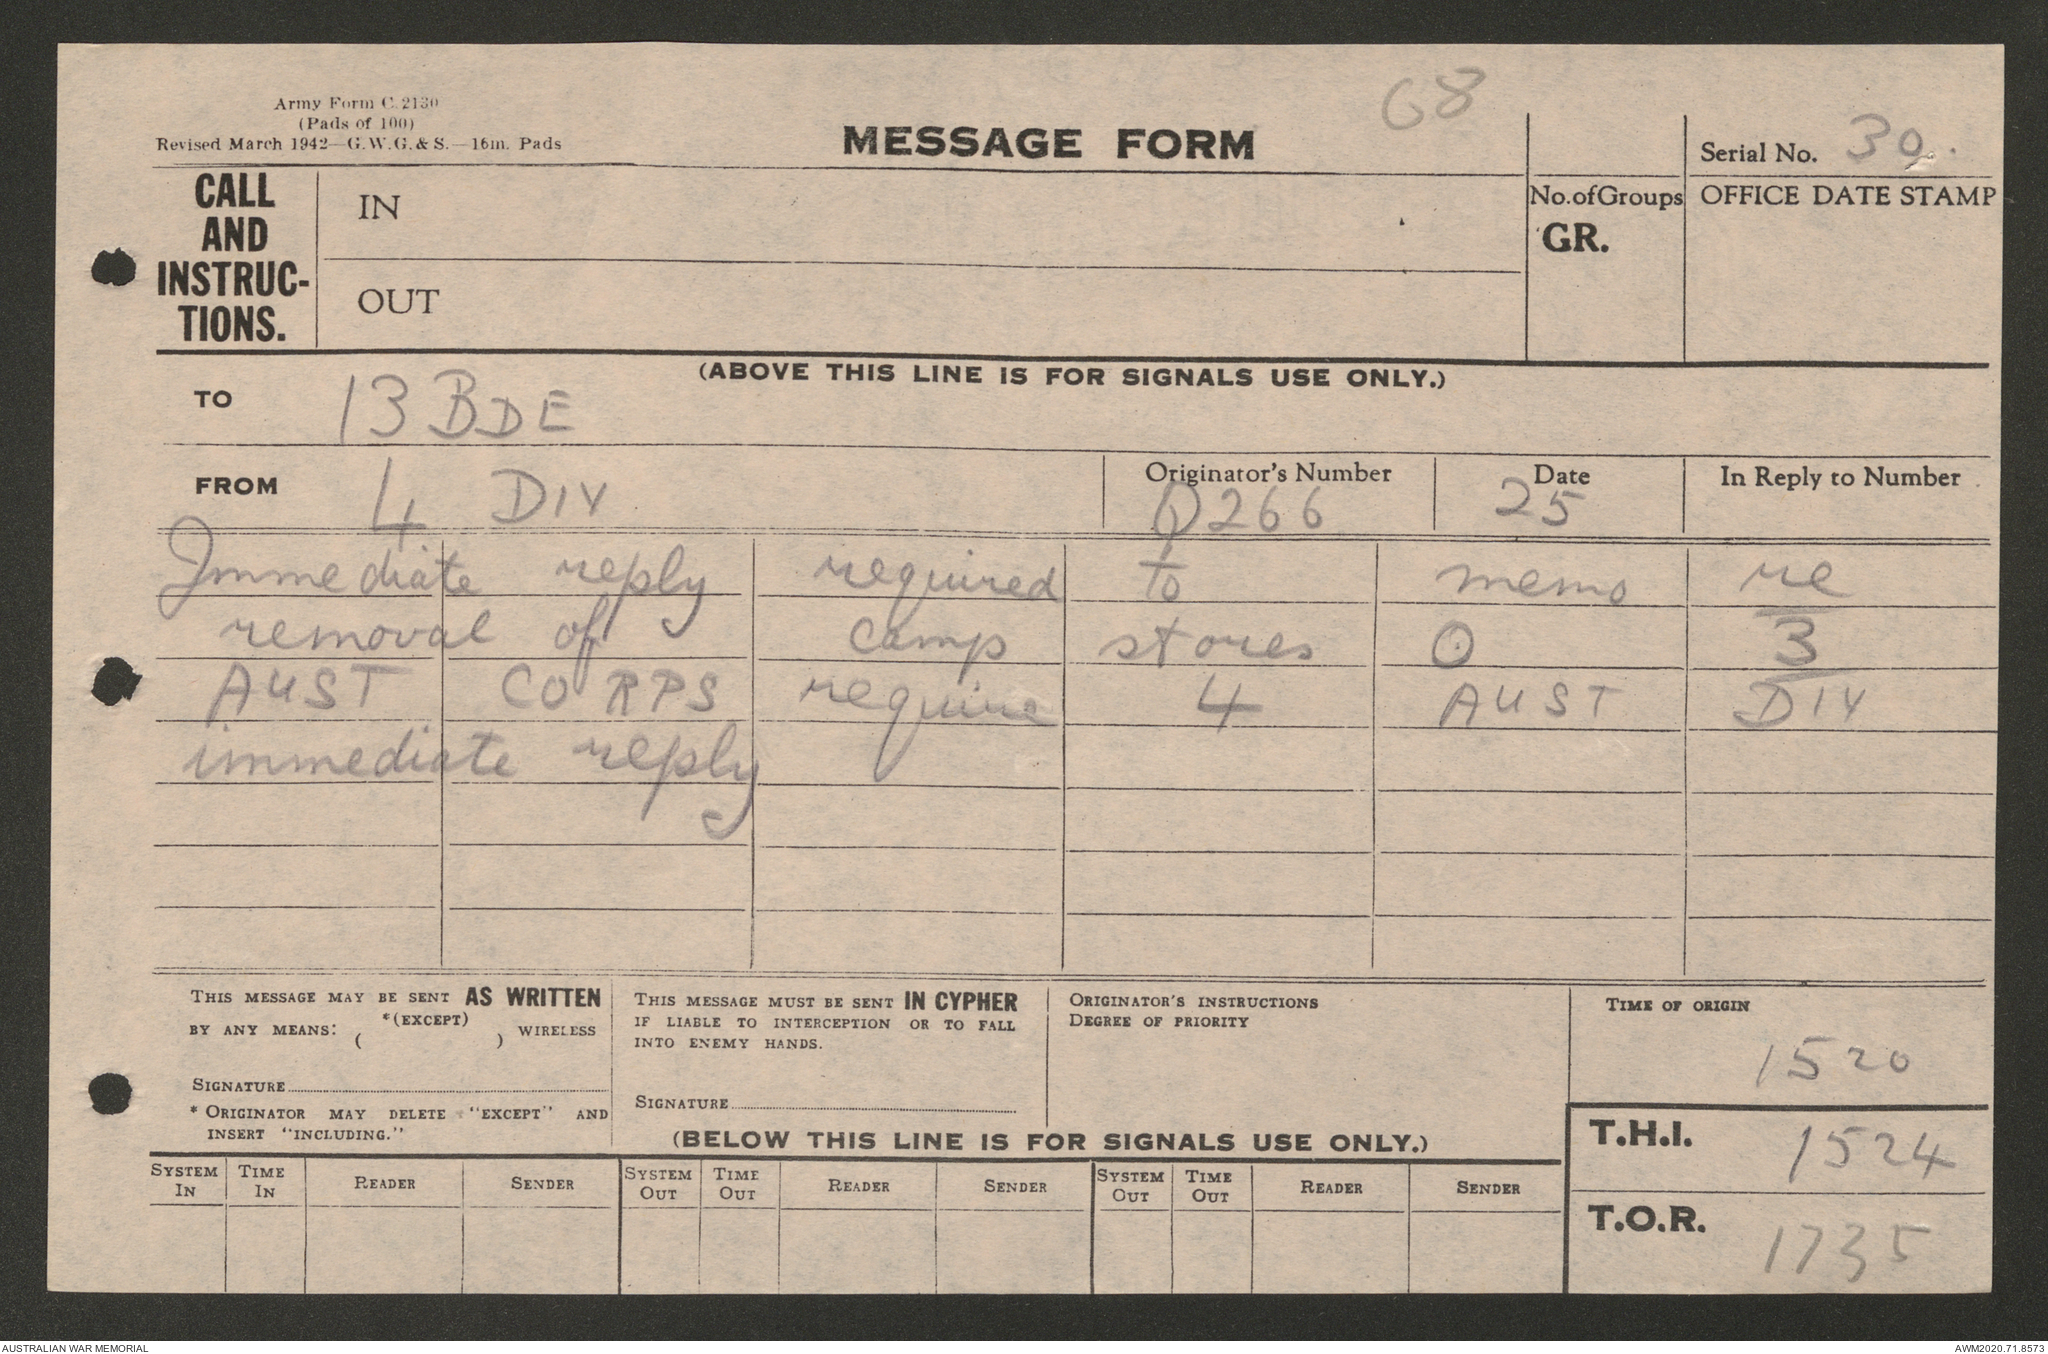 68
Army Form C. 2130
(Pads of 100)
Revised March 1942—G.W.G. & S.—16m. Pads
MESSAGE FORM
Serial No. 30.
CALL AND INSTRUC-TIONS.
IN
OUT
No. of Groups
GR.
OFFICE DATE STAMP
(ABOVE THIS LINE IS FOR SIGNALS USE ONLY.)
TO 13 BDE
FROM 4 DIV
Originator's Number
Q266
Date
25
In Reply to Number
Immediate reply required to memo re
removal of camp stores O 3
AUST CORPS require 4 AUST DIV
immediate reply
THIS MESSAGE MAY BE SENT AS WRITTEN
BY ANY MEANS: *(EXCEPT) ( ) WIRELESS
SIGNATURE
* ORIGINATOR MAY DELETE "EXCEPT" AND
INSERT "INCLUDING."
THIS MESSAGE MUST BE SENT IN CYPHER
IF LIABLE TO INTERCEPTION OR TO FALL
INTO ENEMY HANDS.
SIGNATURE
ORIGINATOR'S INSTRUCTIONS
DEGREE OF PRIORITY
TIME OF ORIGIN
1520
(BELOW THIS LINE IS FOR SIGNALS USE ONLY.)
T.H.I. 1524
T.O.R. 1735
SYSTEM IN TIME IN READER SENDER SYSTEM OUT TIME OUT READER SENDER SYSTEM OUT TIME OUT READER SENDER
AUSTRALIAN WAR MEMORIAL
AWM2020.71.8573